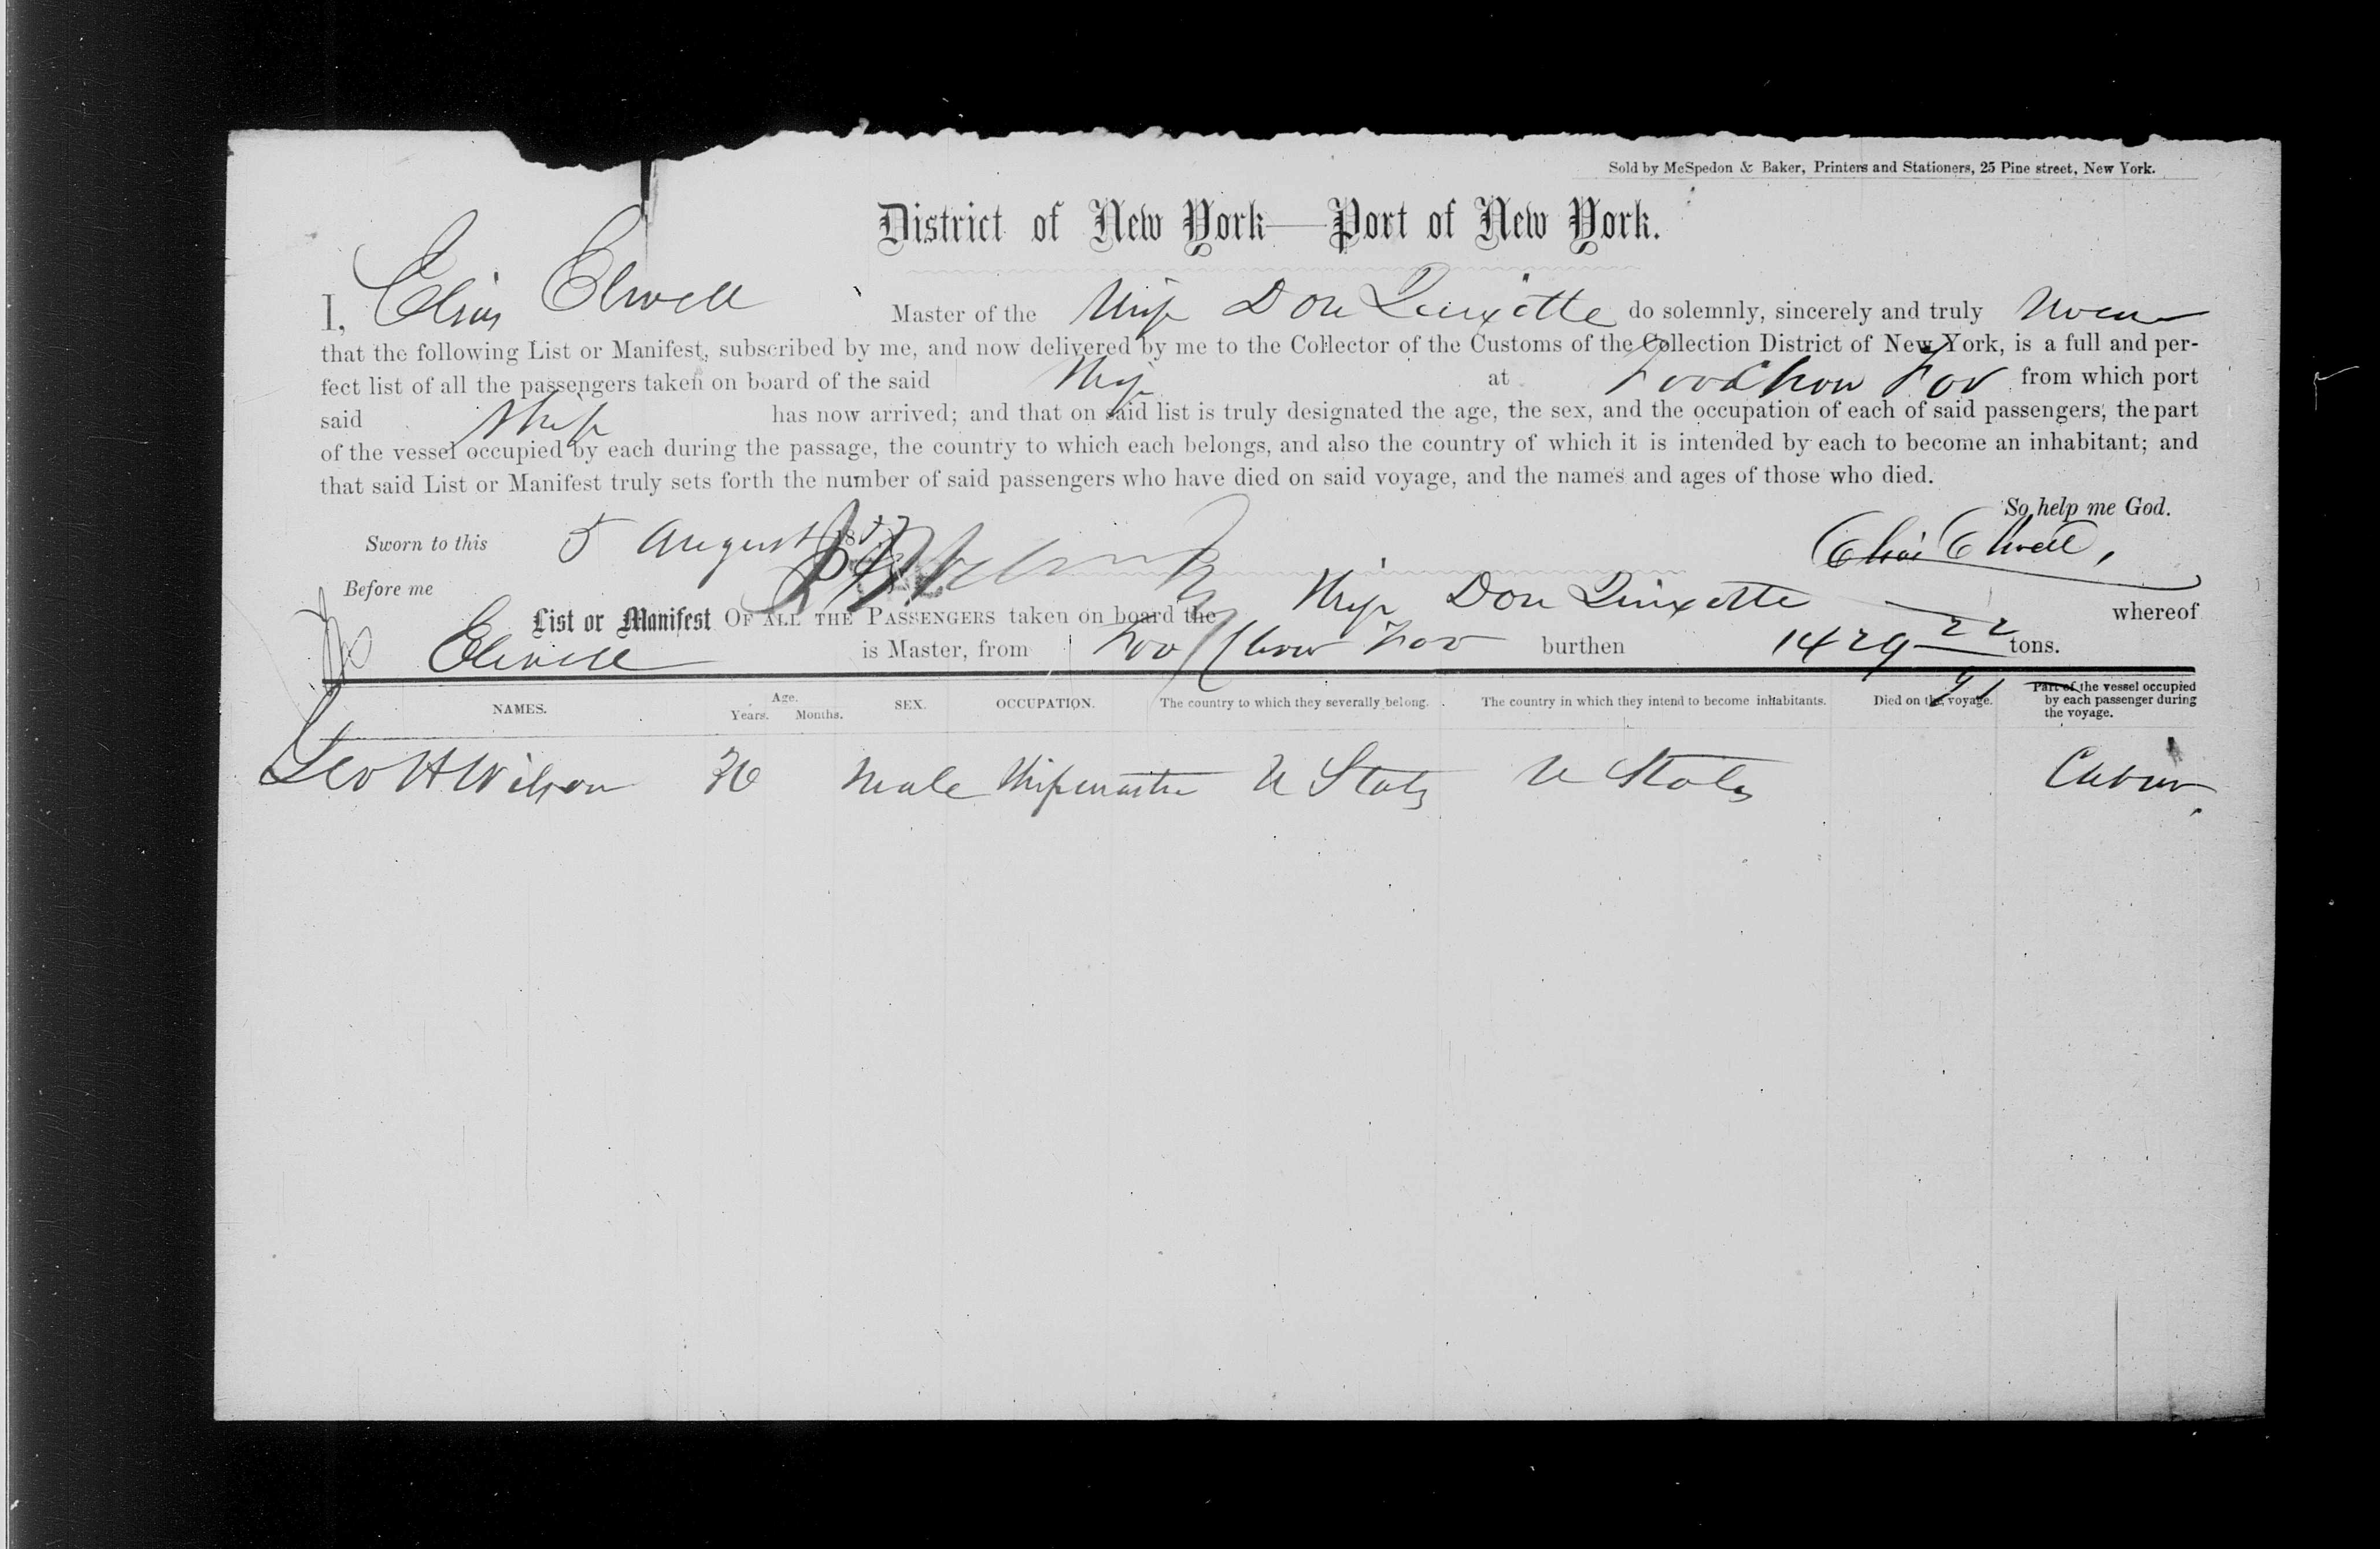 Sold by McSpedon & Baker, Printers and Stationers, 25 Pine street, New York.
District of New York—Port of New York.
I, Elias Elwell Master of the Ship Don Quixotte do solemnly, sincerely and truly swear
that the following List or Manifest, subscribed by me, and now delivered by me to the Collector of the Customs of the Collection District of New York, is a full and per-
fect list of all the passengers taken on board of the said Ship at Foo Chow Foo from which port
said Ship has now arrived; and that on said list is truly designated the age, the sex, and the occupation of each of said passengers, the part
of the vessel occupied by each during the passage, the country to which each belongs, and also the country of which it is intended by each to become an inhabitant; and
that said List or Manifest truly sets forth the number of said passengers who have died on said voyage, and the names and ages of those who died.
So help me God.
Sworn to this 5 August 1857 Elias Elwell,
Before me
List or Manifest OF ALL THE PASSENGERS taken on board the Ship Don Quixotte whereof
Elwell is Master, from Foo Chow Foo burthen 1429 22 tons.
NAMES. Age. Years. Months. SEX. OCCUPATION. The country to which they severally belong. The country in which they intend to become inhabitants. Died on the voyage. Part of the vessel occupied by each passenger during the voyage.
Geo H Wilson 36 Male Shipmaster U States U States Cabin